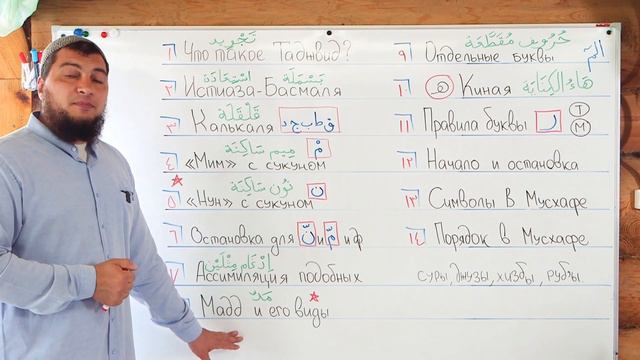 تَجْرِيد
١ Что такое Таджвид?
اِسْتِعَاذَة بَسْمَلَة
٢ Истиаза-Басмаля
قَلْقَلَة
٣ Калькаля ق ط ب ج د
مِيم سَاكِنَة مْ
٤ «Мим» с сукуном
نُون سَاكِنَة ن
٥ «Нун» с сукуном
٦ Остановка для نّ и مّ и ф
إِدْغَام مِثْلَيْن
٧ Ассимиляция подобных
مَدّ
Мадд и его виды
حُرُوف مُقَطَّعَة
٩ Отдельные буквы الٓمٓ
١٠ ه Киная هَاءُ الكِنَايَة
١١ Правила буквы ر Т М
١٢ Начало и остановка
١٣ Символы в Мусхафе
١٤ Порядок в Мусхафе
суры, джузы, хизбы, рубы